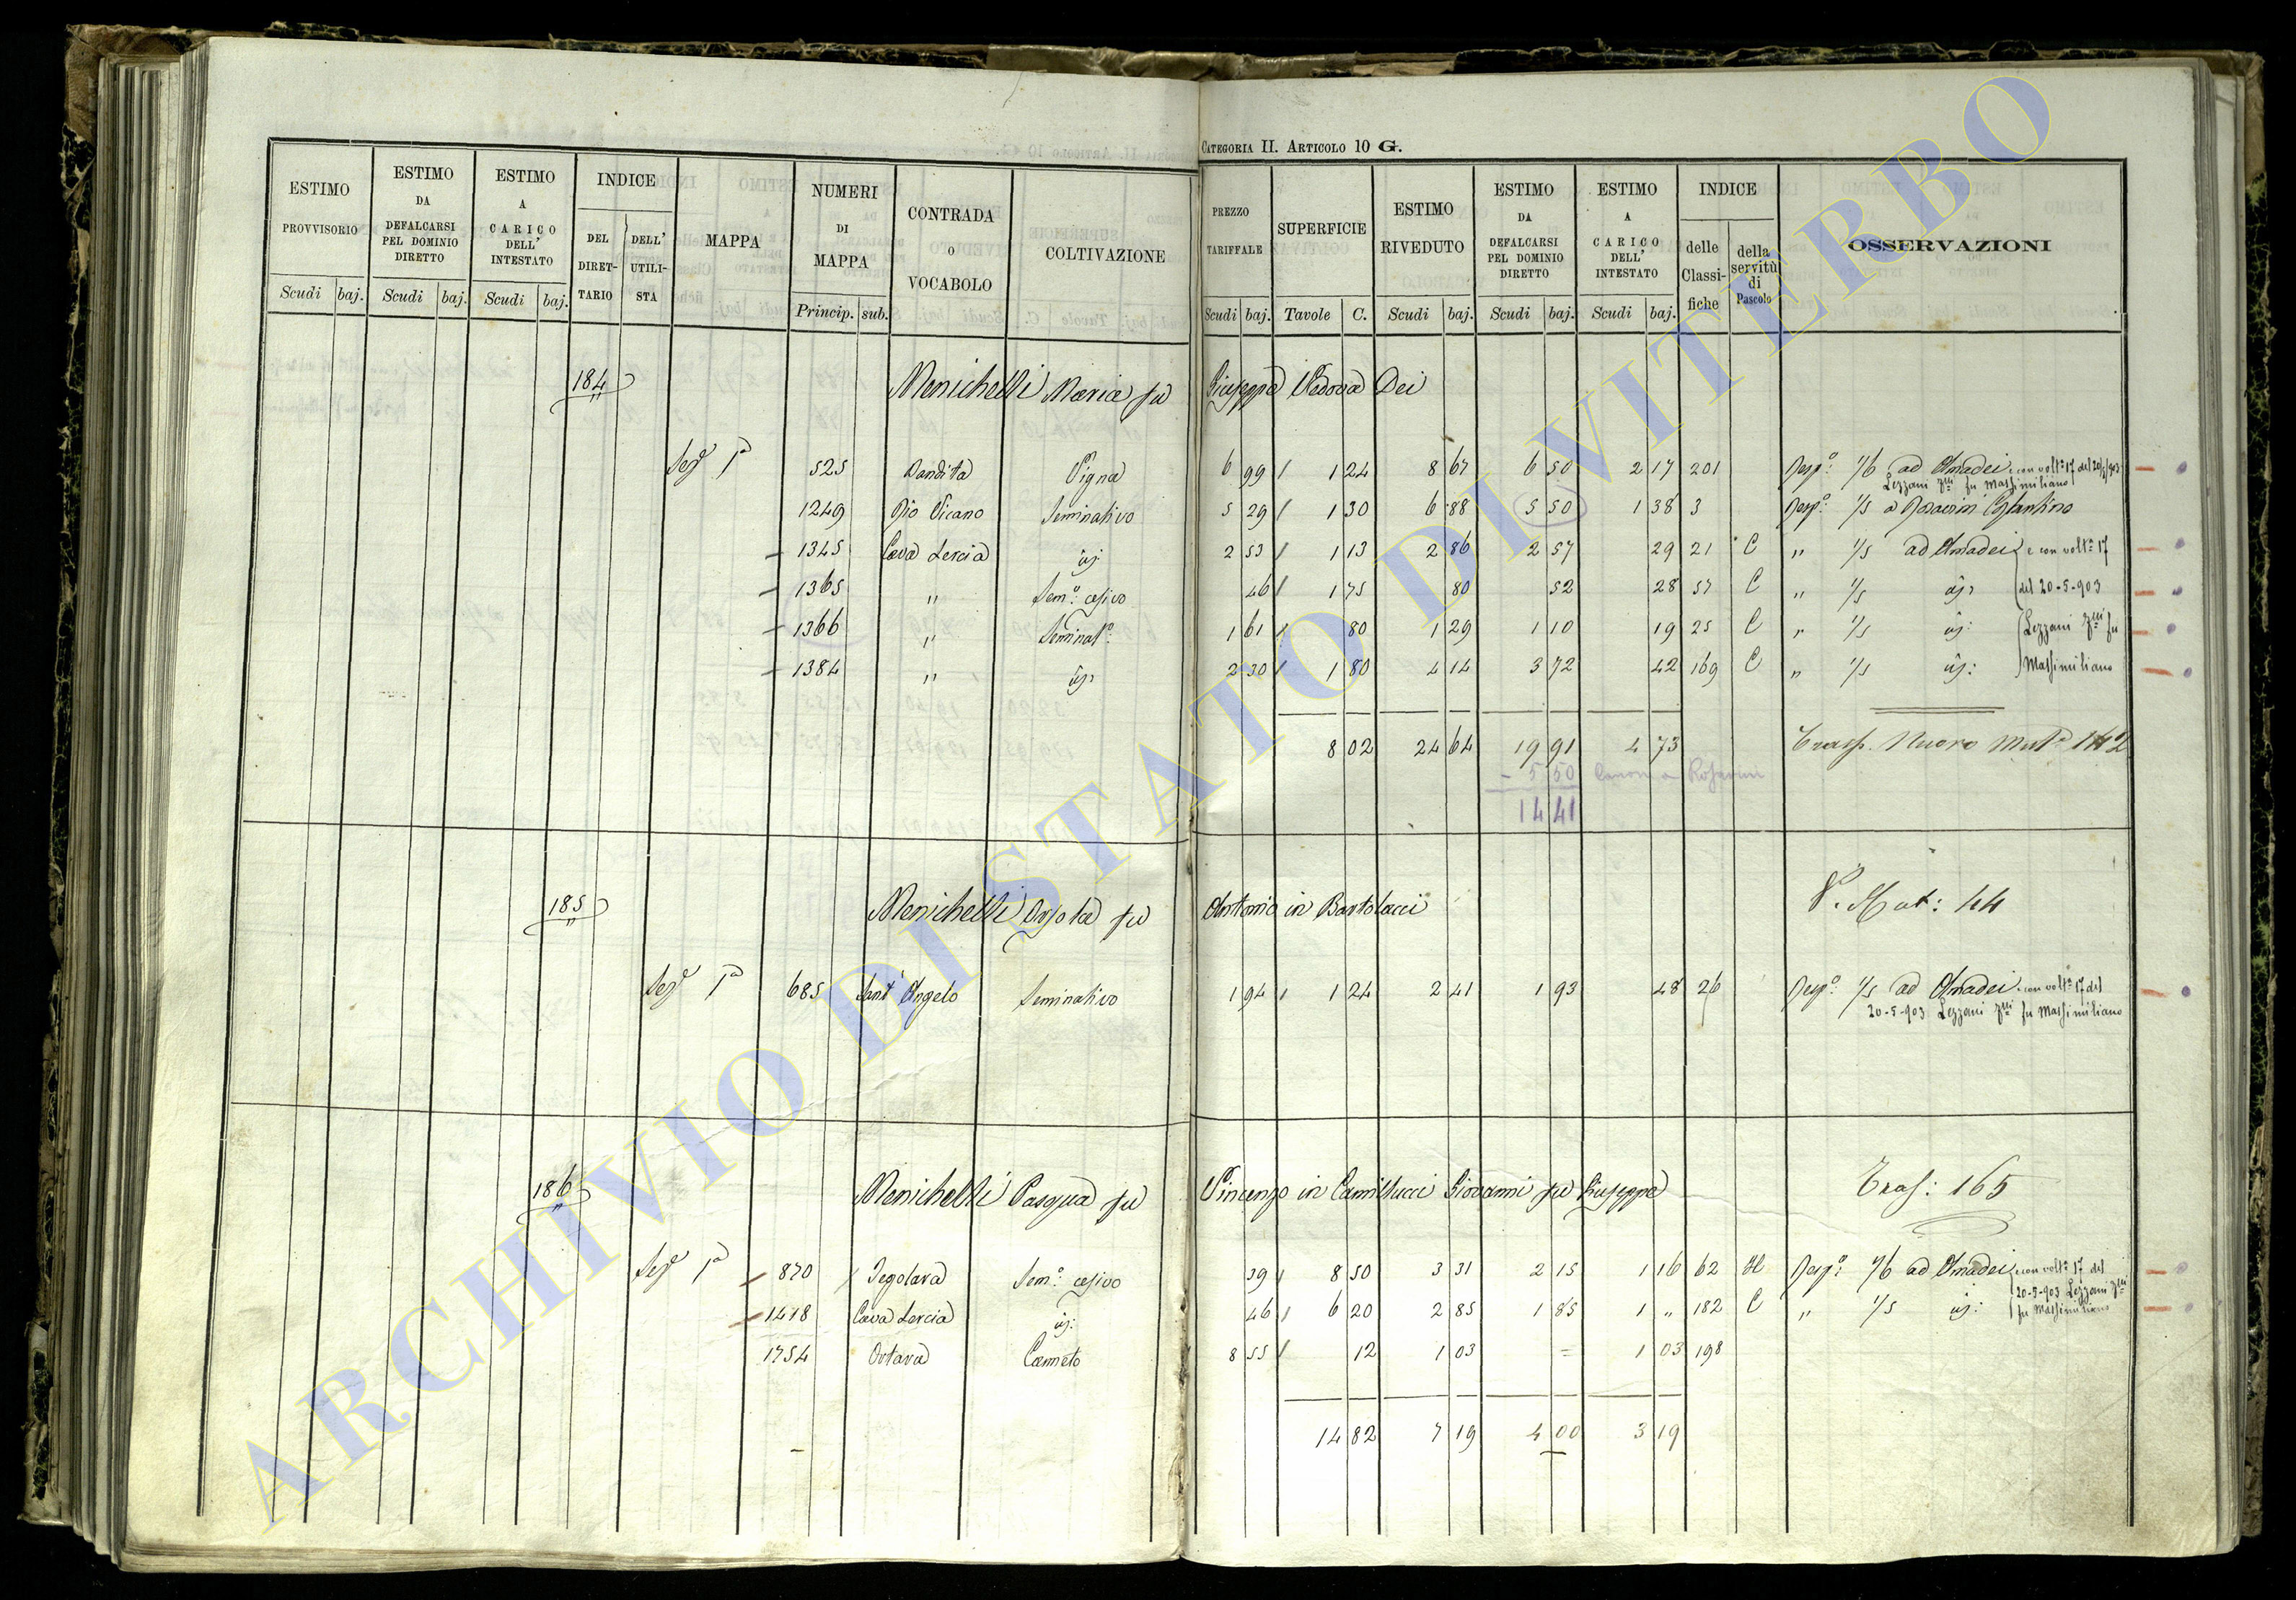 CATEGORIA II. ARTICOLO 10 G.
ESTIMO PROVVISORIO | ESTIMO DA DEFALCARSI PEL DOMINIO DIRETTO | ESTIMO A CARICO DELL' INTESTATO | INDICE DEL DIRET-TARIO | DELL' UTILI-STA | MAPPA | NUMERI DI MAPPA | CONTRADA O VOCABOLO | COLTIVAZIONE | PREZZO TARIFFALE | SUPERFICIE | ESTIMO RIVEDUTO | ESTIMO DA DEFALCARSI PEL DOMINIO DIRETTO | ESTIMO A CARICO DELL' INTESTATO | INDICE delle Classi-fiche | della servitù di Pascolo | OSSERVAZIONI
Scudi baj. Scudi baj. Scudi baj. Princip. sub. Scudi baj. Tavole C. Scudi baj. Scudi baj. Scudi baj.
184 Menichelli Maria fu Giuseppe Vedova Dei
Sez.e 1a 525 Bandita Vigna 6 99 1 24 8 67 6 50 2 17 201 Resp.o: 1/6 ad Amadei e con volt.a 17 del 20/5/903
Lezzani fu Massimiliano
1249 Rio Vicano Seminativo 5 29 1 30 6 88 5 50 1 38 3 Resp.o: 1/5 a
1345 Cava Lercia id. 2 53 1 13 2 86 2 57 29 21 C " 1/5 ad Amadei e con volt.a 17
1365 " Sem.o: cesivo 46 1 75 80 52 28 57 C " 1/5 id. del 20-5-903
1366 " Seminat.o 1 61 80 1 29 1 10 19 25 C " 1/5 id: Lezzani fu
1384 " id. 2 30 1 80 4 14 3 72 42 169 C " 1/5 id: Massimiliano
8 02 24 64 19 91 4 73 Trasp. Nuovo Mut.e 142
- 5 50 Canone a
14 41
185 Menichelli Orsola fu Antonio in Bartolacci V. Mut: 44
Sez.e 1a 685 Sant'Angelo Seminativo 1 94 1 24 2 41 1 93 48 26 Resp.o: 1/5 ad Amadei e con volt.a 17 del
20-5-903 Lezzani fu Massimiliano
186 Menichelli Pasqua fu Vincenzo in Camillucci Giovanni fu Giuseppe Tras: 165
Sez.e 1a 870 Pegolara Sem.o: cesivo 39 8 50 3 31 2 15 1 16 62 H Resp.o: 1/6 ad Amadei e con volt.a 17 del
1418 Cava Lercia id: 46 6 20 2 85 1 85 1 " 182 C " 1/5 id: 20-5-903 Lezzani fu Massimiliano
1754 Ortara Canneto 8 55 12 1 03 = 1 03 198
14 82 7 19 4 00 3 19
ARCHIVIO DI STATO DI VITERBO